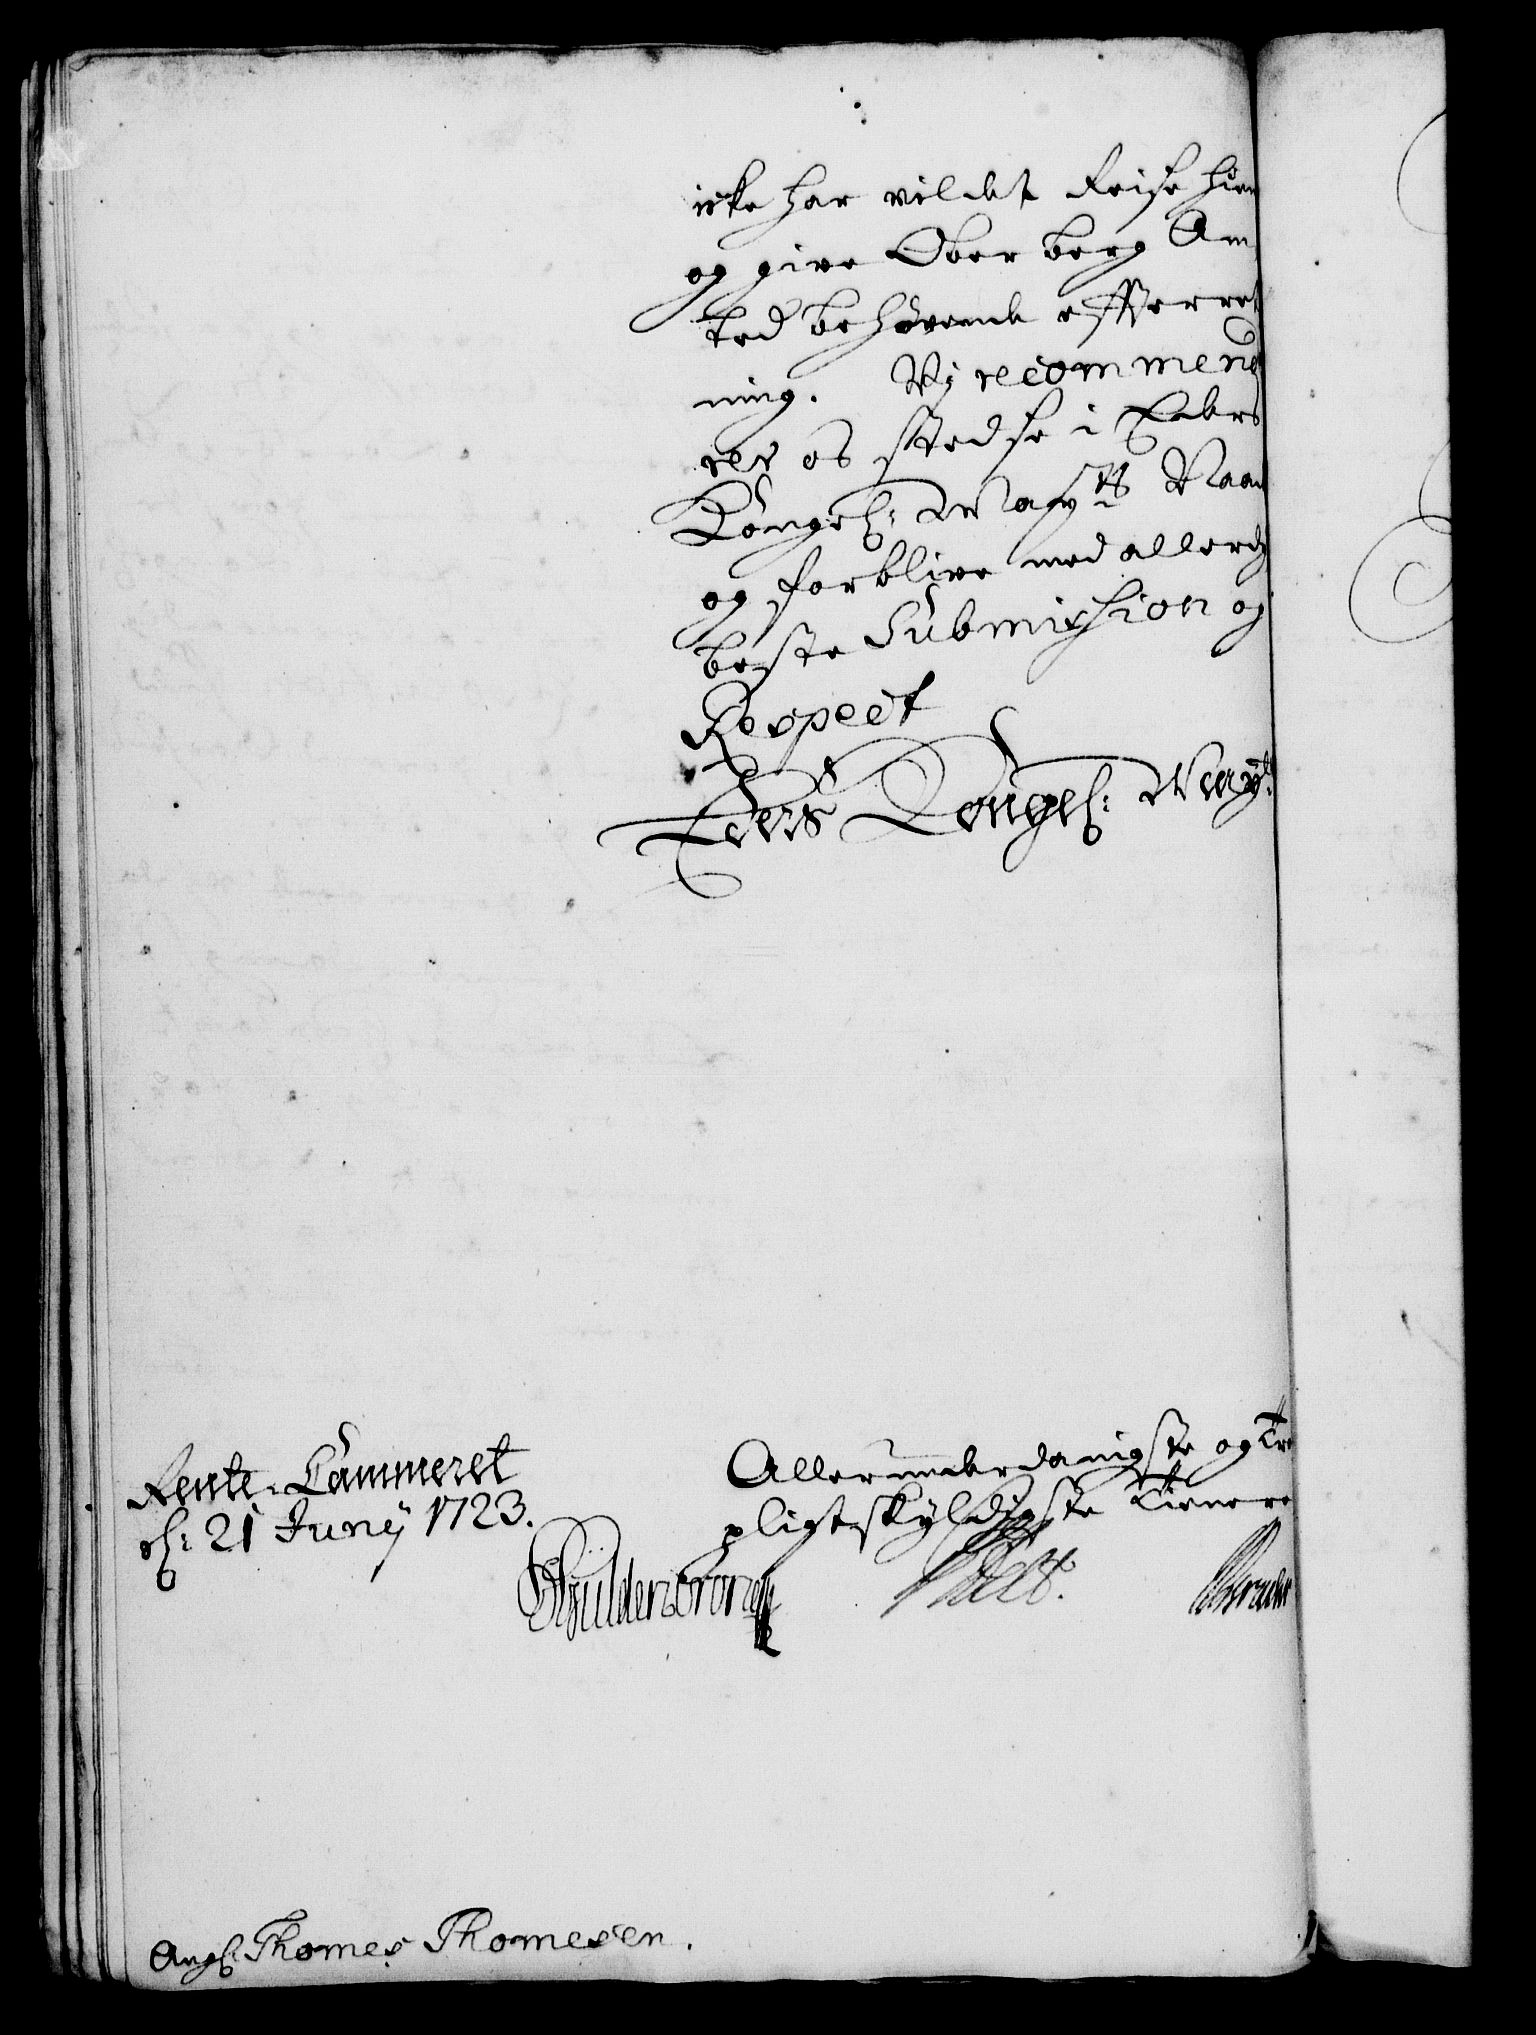 icke har vildet Reise hien
og give Ober berg Am
ted behörende effterret
ning. Vij recommend
rer os stedse i Eders
Kongel: Mayts Naad
og forblive med allerdy
beste Submission og
Respect
Eders Kongel: Mayts
Rente-Cammeret
d: 21 Junij 1723.
Allerunderdanigste og Tro
pligtskyldigste Tienere
Gyldencrone
Ang: Thomes Thomesen.